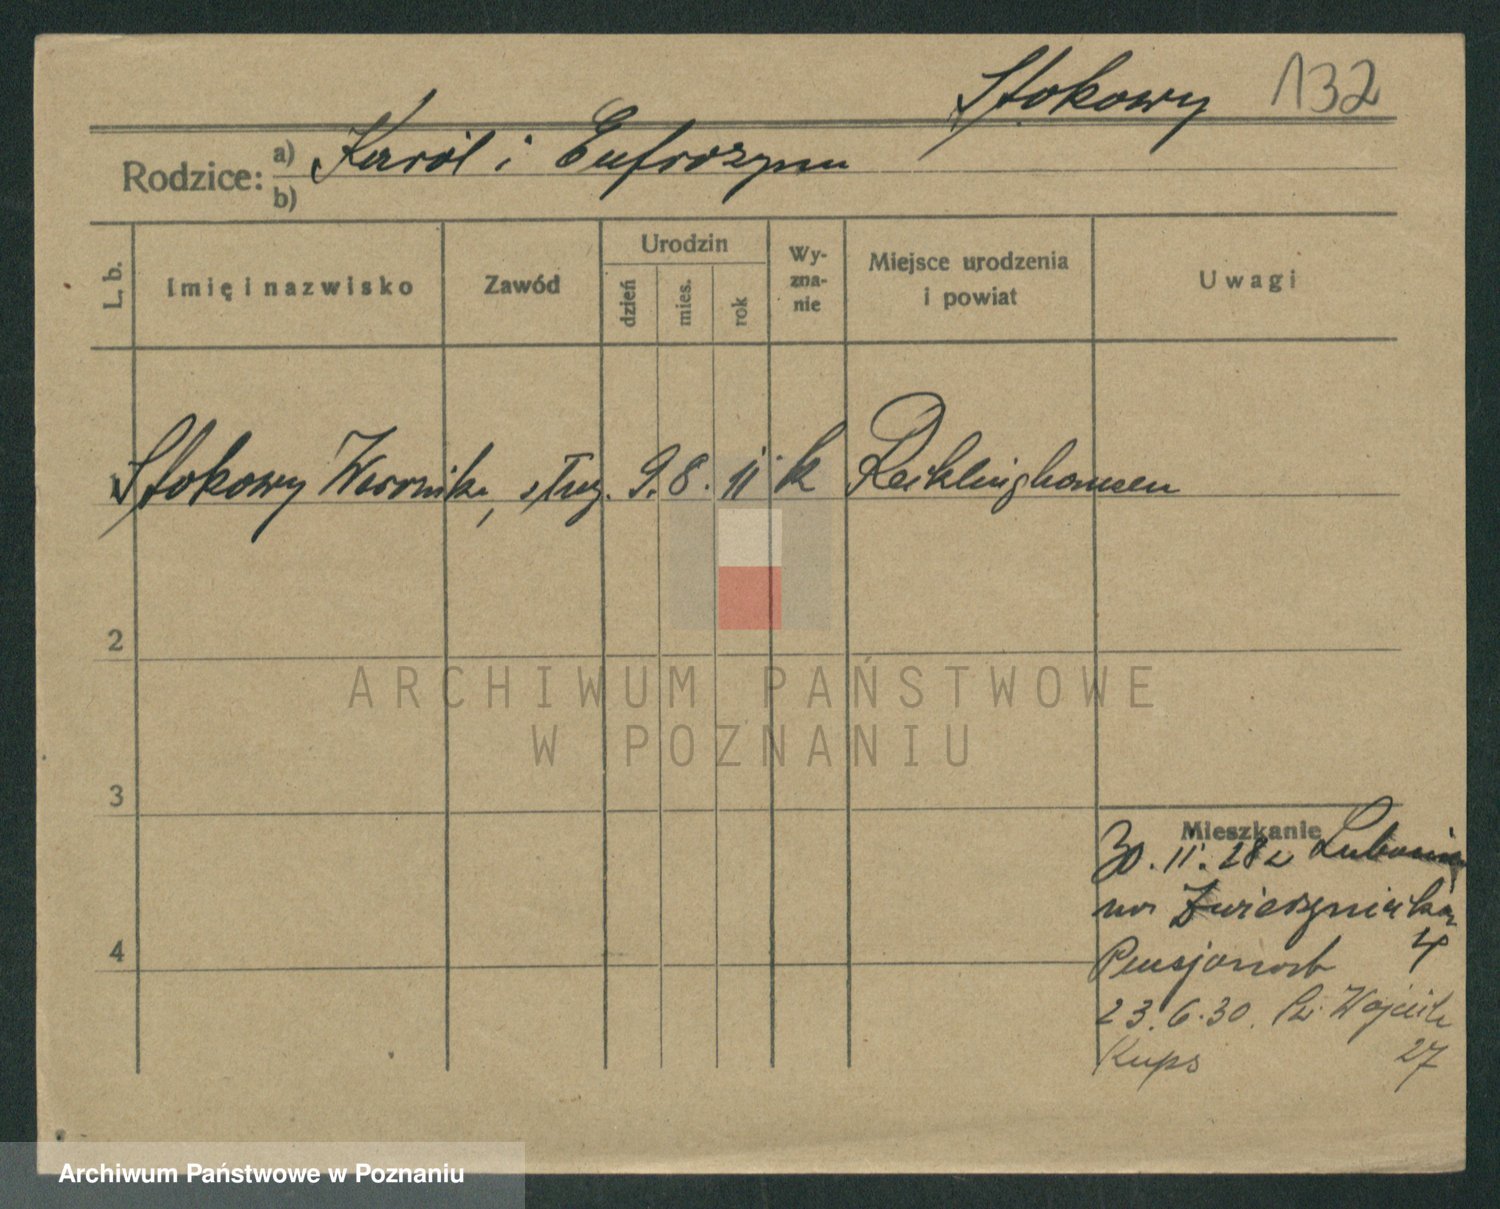 Stokowy 132
Rodzice: a) Karól i Eufrozyna
b)
L. b.
Imię i nazwisko
Zawód
Urodzin
dzień
mies.
rok
Wy-
zna-
nie
Miejsce urodzenia
i powiat
Uwagi
Stokowy Weronika, służ. 9. 8. 11 k Recklinghausen
2
ARCHIWUM PAŃSTWOWE
W POZNANIU
3
Mieszkanie
30. 11. 28 z
na Zwierzyniecka
Pensjonat 4
23. 6. 30. Wojciech
27
4
Archiwum Państwowe w Poznaniu